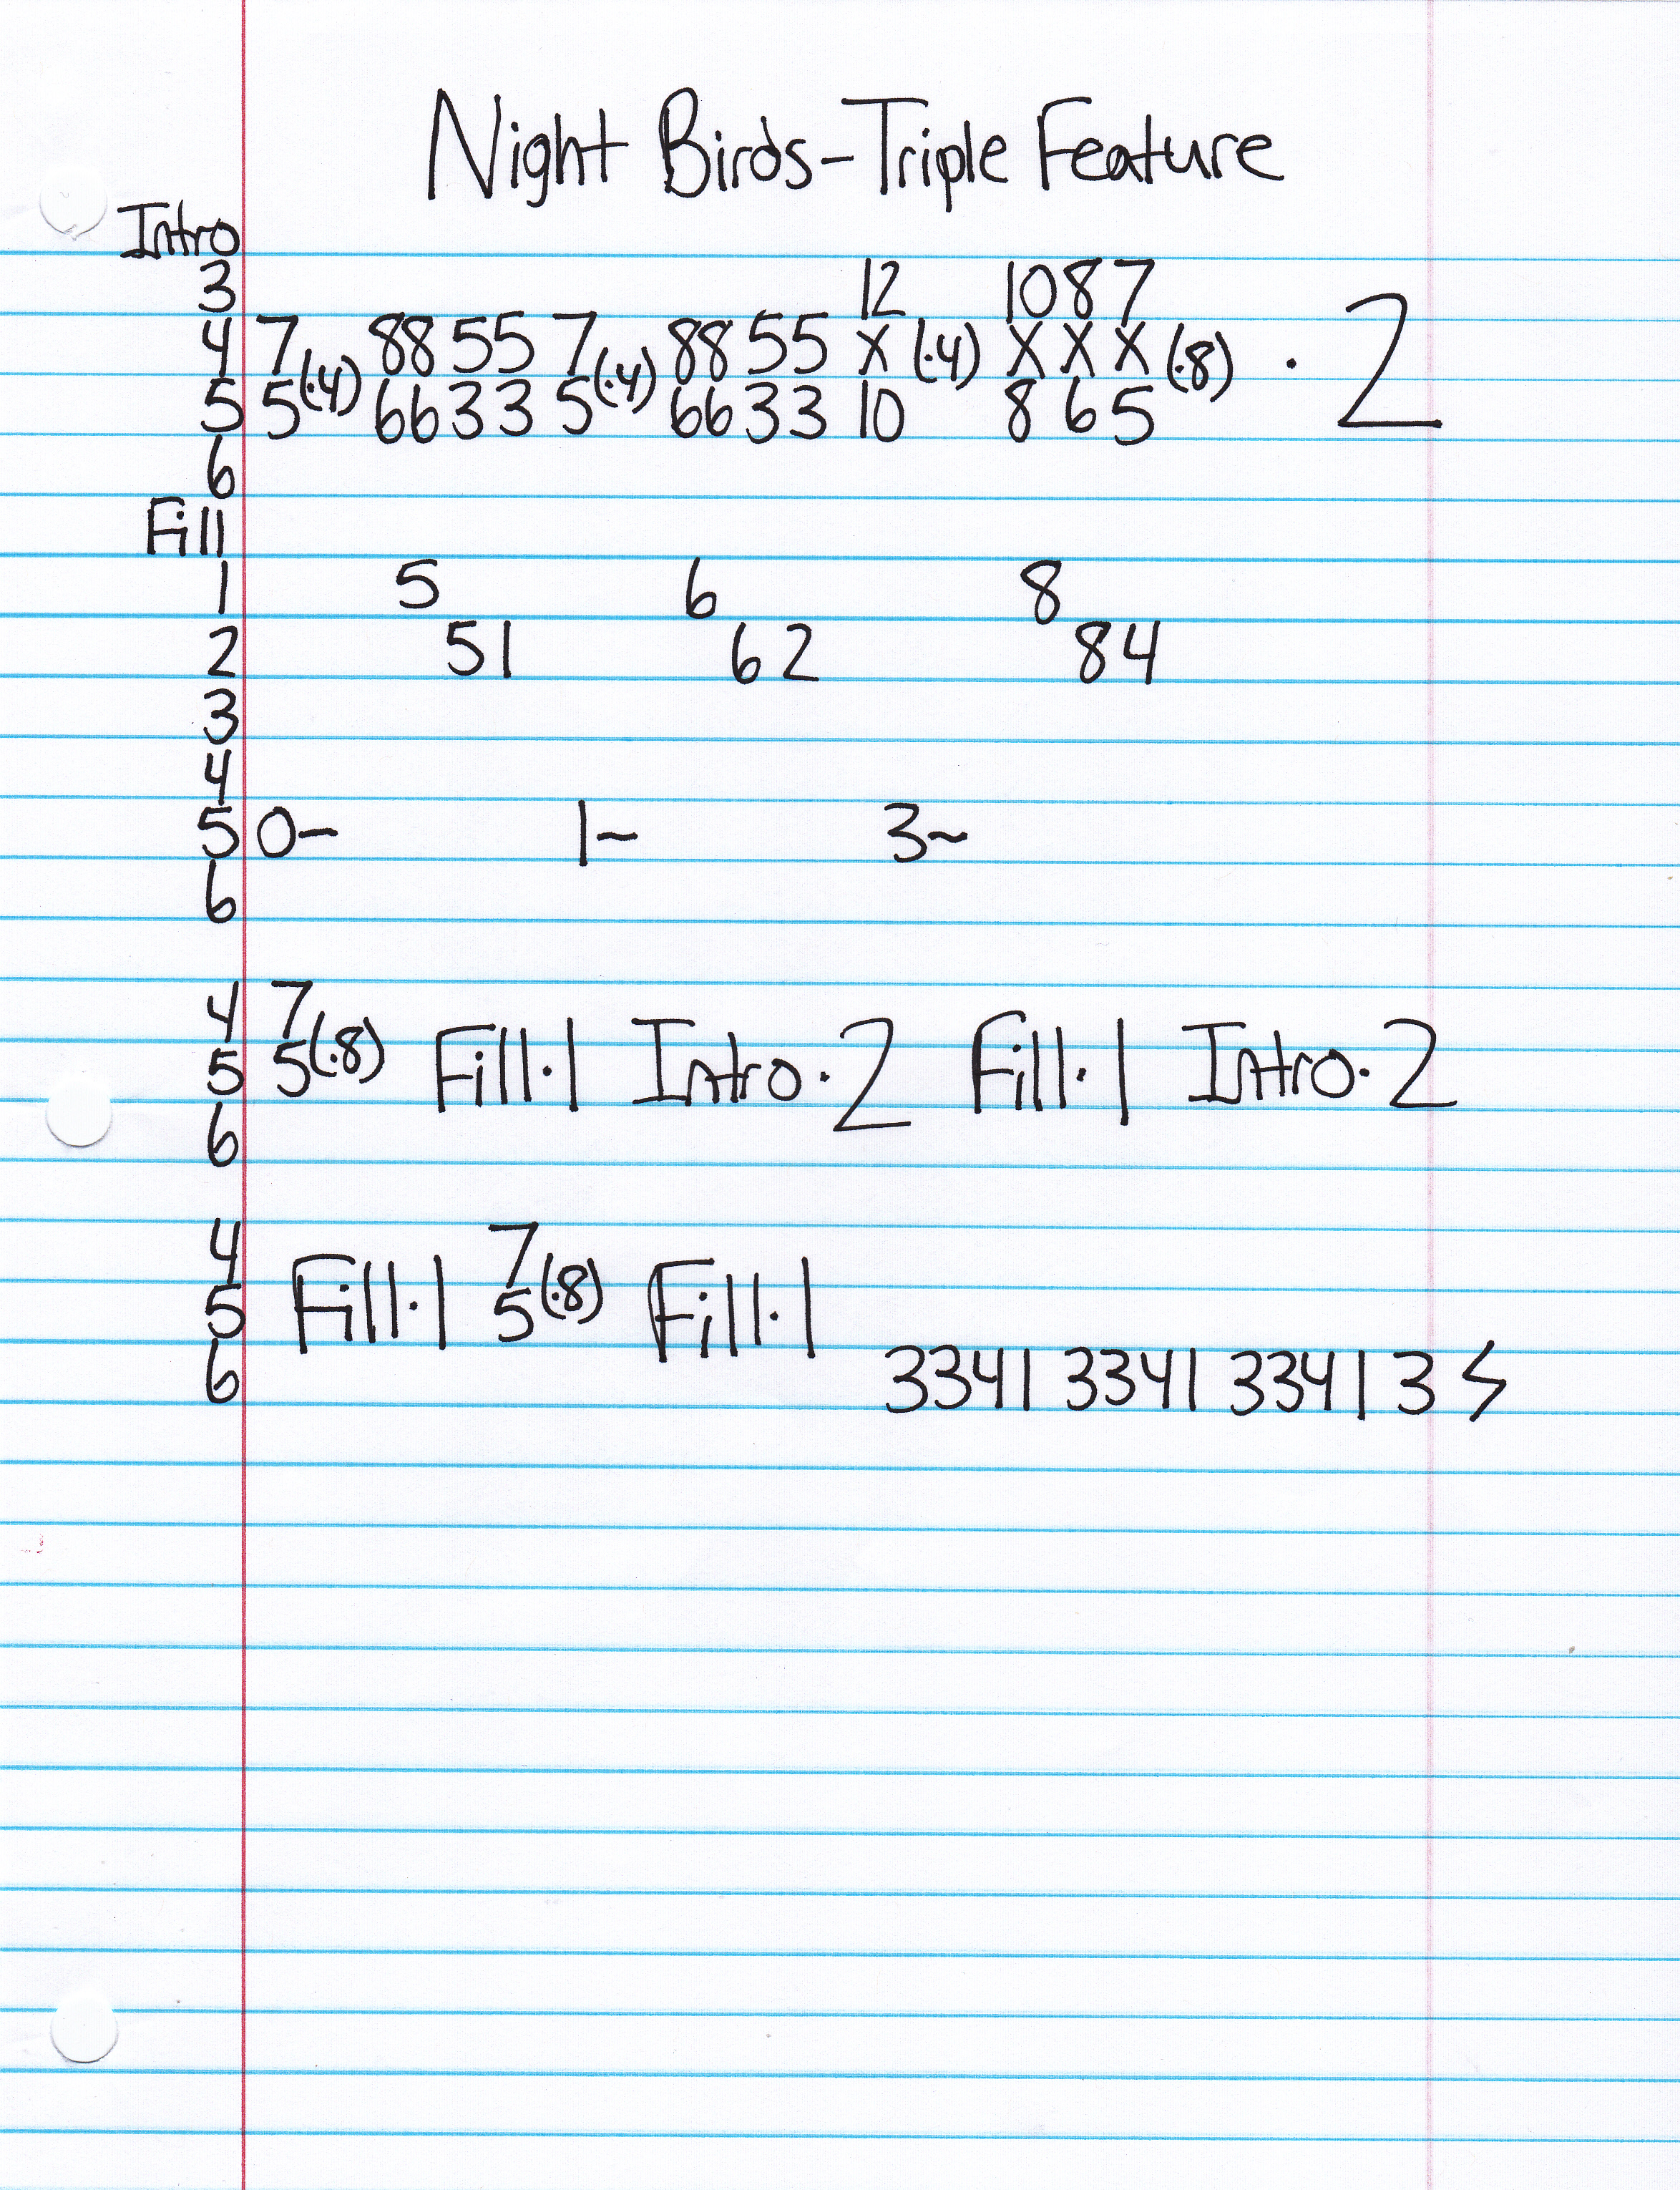 Night Birds-Triple Feature
Intro
3 12 10 8 7
4 7 (·4) 88 55 7 (·4) 88 55 X (·4) X X X (·8) · 2
5 5 66 33 5 66 33 10 8 6 5
6
Fill
1 5 6 8
2 51 62 84
3
4
5 0– 1~ 3~
6
4 7
5 5(·8) Fill·1 Intro·2 Fill·1 Intro·2
6
4 7
5 Fill·1 5(·8) Fill·1
6 3341 3341 3341 3